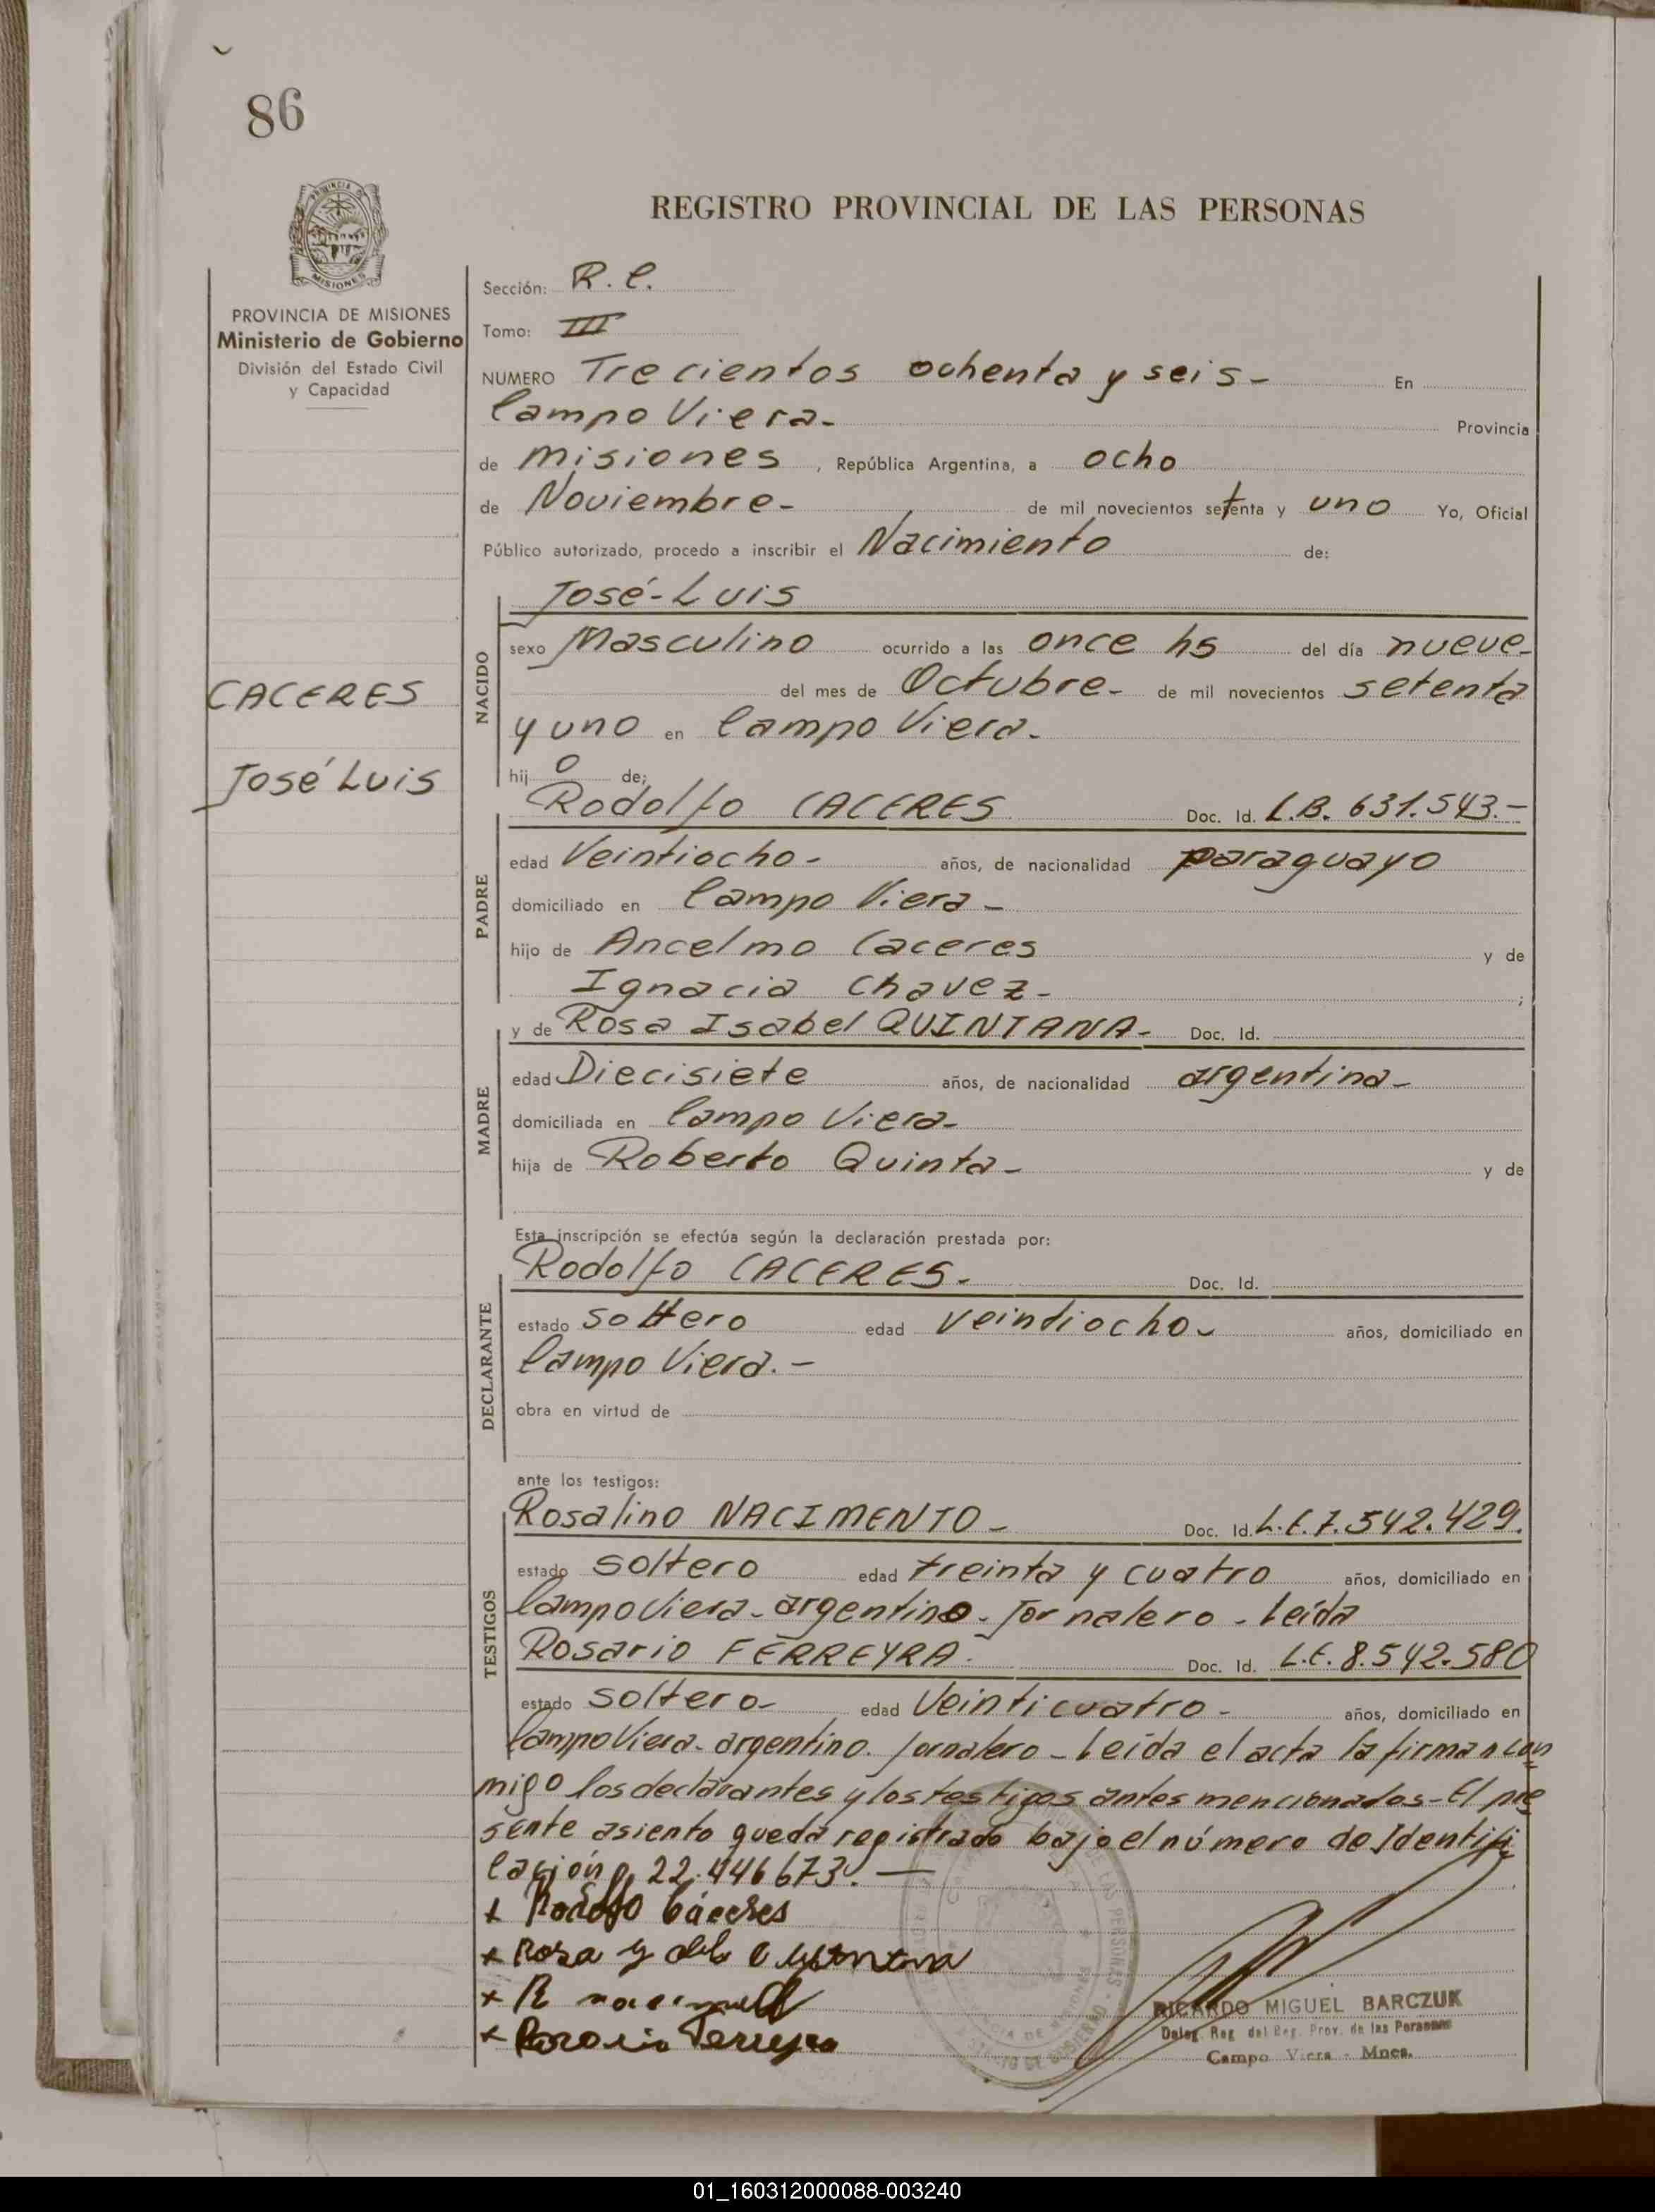 86
REGISTRO PROVINCIAL DE LAS PERSONAS
PROVINCIA DE MISIONES
Ministerio de Gobierno
División del Estado Civil
y Capacidad
CACERES
José Luis
Sección: R.C.
Tomo: III
NUMERO Trecientos ochenta y seis- En
Campo Viera-
Provincia
de Misiones, República Argentina, a ocho
de Noviembre- de mil novecientos setenta y uno Yo, Oficial
Público autorizado, procedo a inscribir el Nacimiento de:
NACIDO
José-Luis
sexo Masculino ocurrido a las once hs del día nueve-
del mes de Octubre- de mil novecientos setenta
y uno en Campo Viera-
hij o de;
PADRE
Rodolfo CACERES Doc. Id. C.B. 631.543.-
edad Veintiocho- años, de nacionalidad paraguayo
domiciliado en Campo Viera-
hijo de Ancelmo Caceres y de
Ignacia Chavez- ;
MADRE
y de Rosa Isabel QUINTANA- Doc. Id.
edad Diecisiete años, de nacionalidad argentina-
domiciliada en Campo Viera-
hija de Roberto Quinta- y de
Esta inscripción se efectúa según la declaración prestada por:
DECLARANTE
Rodolfo CACERES- Doc. Id.
estado soltero edad veintiocho- años, domiciliado en
Campo Viera.-
obra en virtud de
ante los testigos:
TESTIGOS
Rosalino NACIMENTO- Doc. Id. L.E. 7.542.429.
estado soltero edad treinta y cuatro años, domiciliado en
Campo Viera- argentino- Jornalero- Leída
Rosario FERREYRA- Doc. Id. L.E. 8.542.580
estado soltero- edad Veinticuatro- años, domiciliado en
Campo Viera- argentino. Jornalero- Leída el acta la firman con
migo los declarantes y los testigos antes mencionados- El pre
sente asiento queda registrado bajo el número de Identifi
cación 22.446673.—
+ Rodolfo Cáceres
+ Rosa
+ R
+ Rosario Ferreyra
RICARDO MIGUEL BARCZUK
Deleg. Reg. del Reg. Prov. de las Personas
Campo Viera - Mnes.
01_160312000088-003240